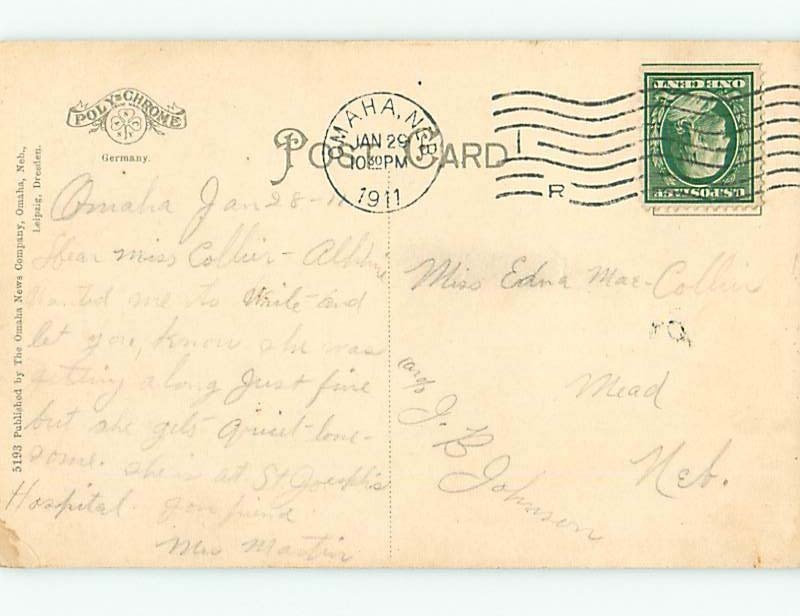 POLY-CHROME
Germany.
POST CARD
OMAHA, NEB.
JAN 29
10 30 PM
1911
R
ONE CENT
U.S. POSTAGE
5193 Published by The Omaha News Company, Omaha, Neb.,
Leipzig, Dresden.
Omaha Jan 28-11
Dear Miss Collier -
Wanted me to Write and
let you, know she was
getting along Just fine
but she gets Quiet lone-
some. She is at St Joseph's
Hospital. your friend
Mrs Martin
Miss Edna Mae Collier
Mead
Neb.
care of
J. B
Johnson